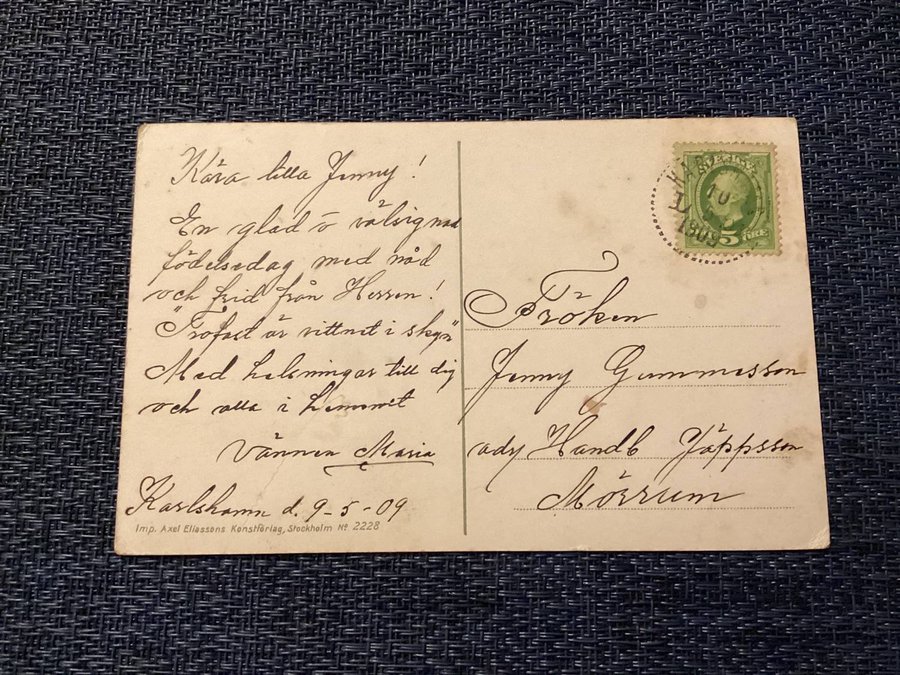 Kära lilla Jenny!
En glad o välsignad
födelsedag med nåd
och frid från Herren!
"Trofast är vittnet i skyn"
Med helsningar till dig
och alla i hemmet
Vännen Maria
Karlshamn d. 9-5-09
Imp. Axel Eliassons Konstförlag, Stockholm No 2228
SVERIGE
5 ÖRE
1909
Fröken
Jenny Gummesson
adr Handl Jäppsson
Mörrum